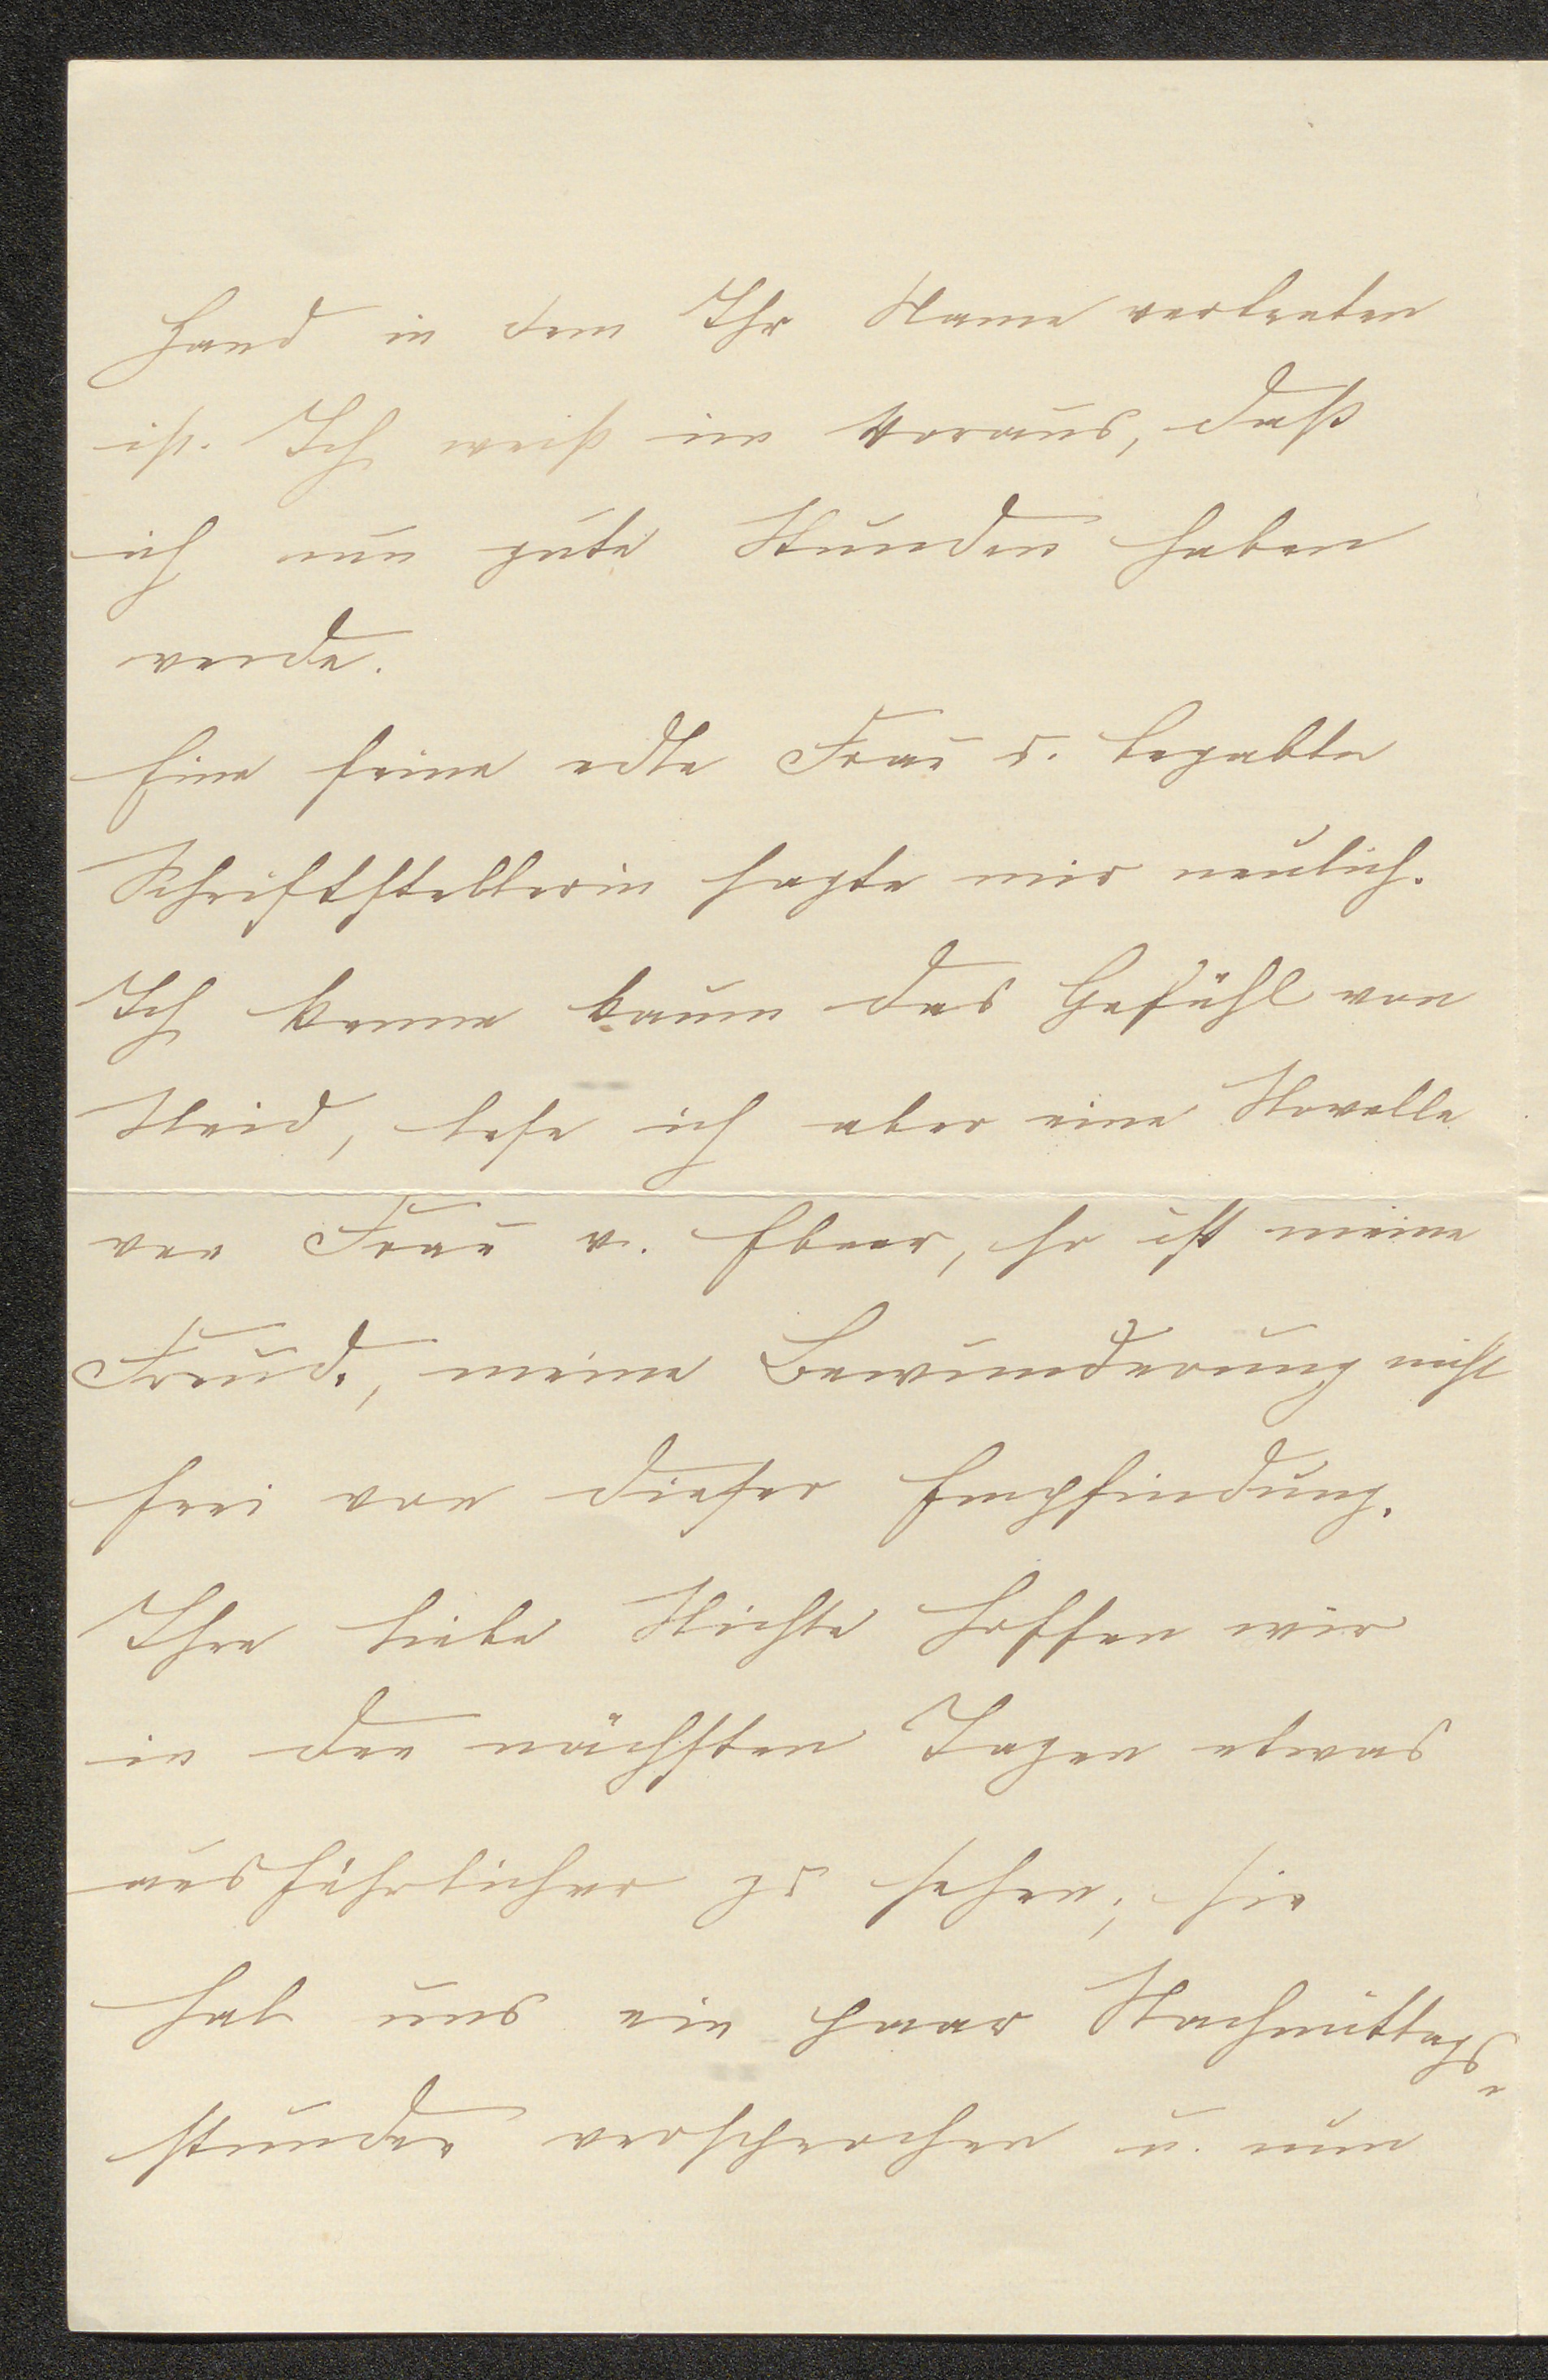 Hand in dem Ihr Name vertreten
ist. Ich weiß im Voraus, daß
ich nun gute Stunden haben
werde.
Eine feine edle Frau u. begabte
Schriftstellerin sagte mir neulich.
Ich kenne kaum das Gefühl von
Neid, lese ich aber eine Novelle
von Frau v. Ebner, so ist meine
Freude, meine Bewunderung nicht
frei von dieser Empfindung.
Ihre liebe Nichte hoffen wir
in den nächsten Tagen etwas
ausführlicher zu sehen; sie
hat uns ein paar Nachmittags-
stunden versprochen u. nun